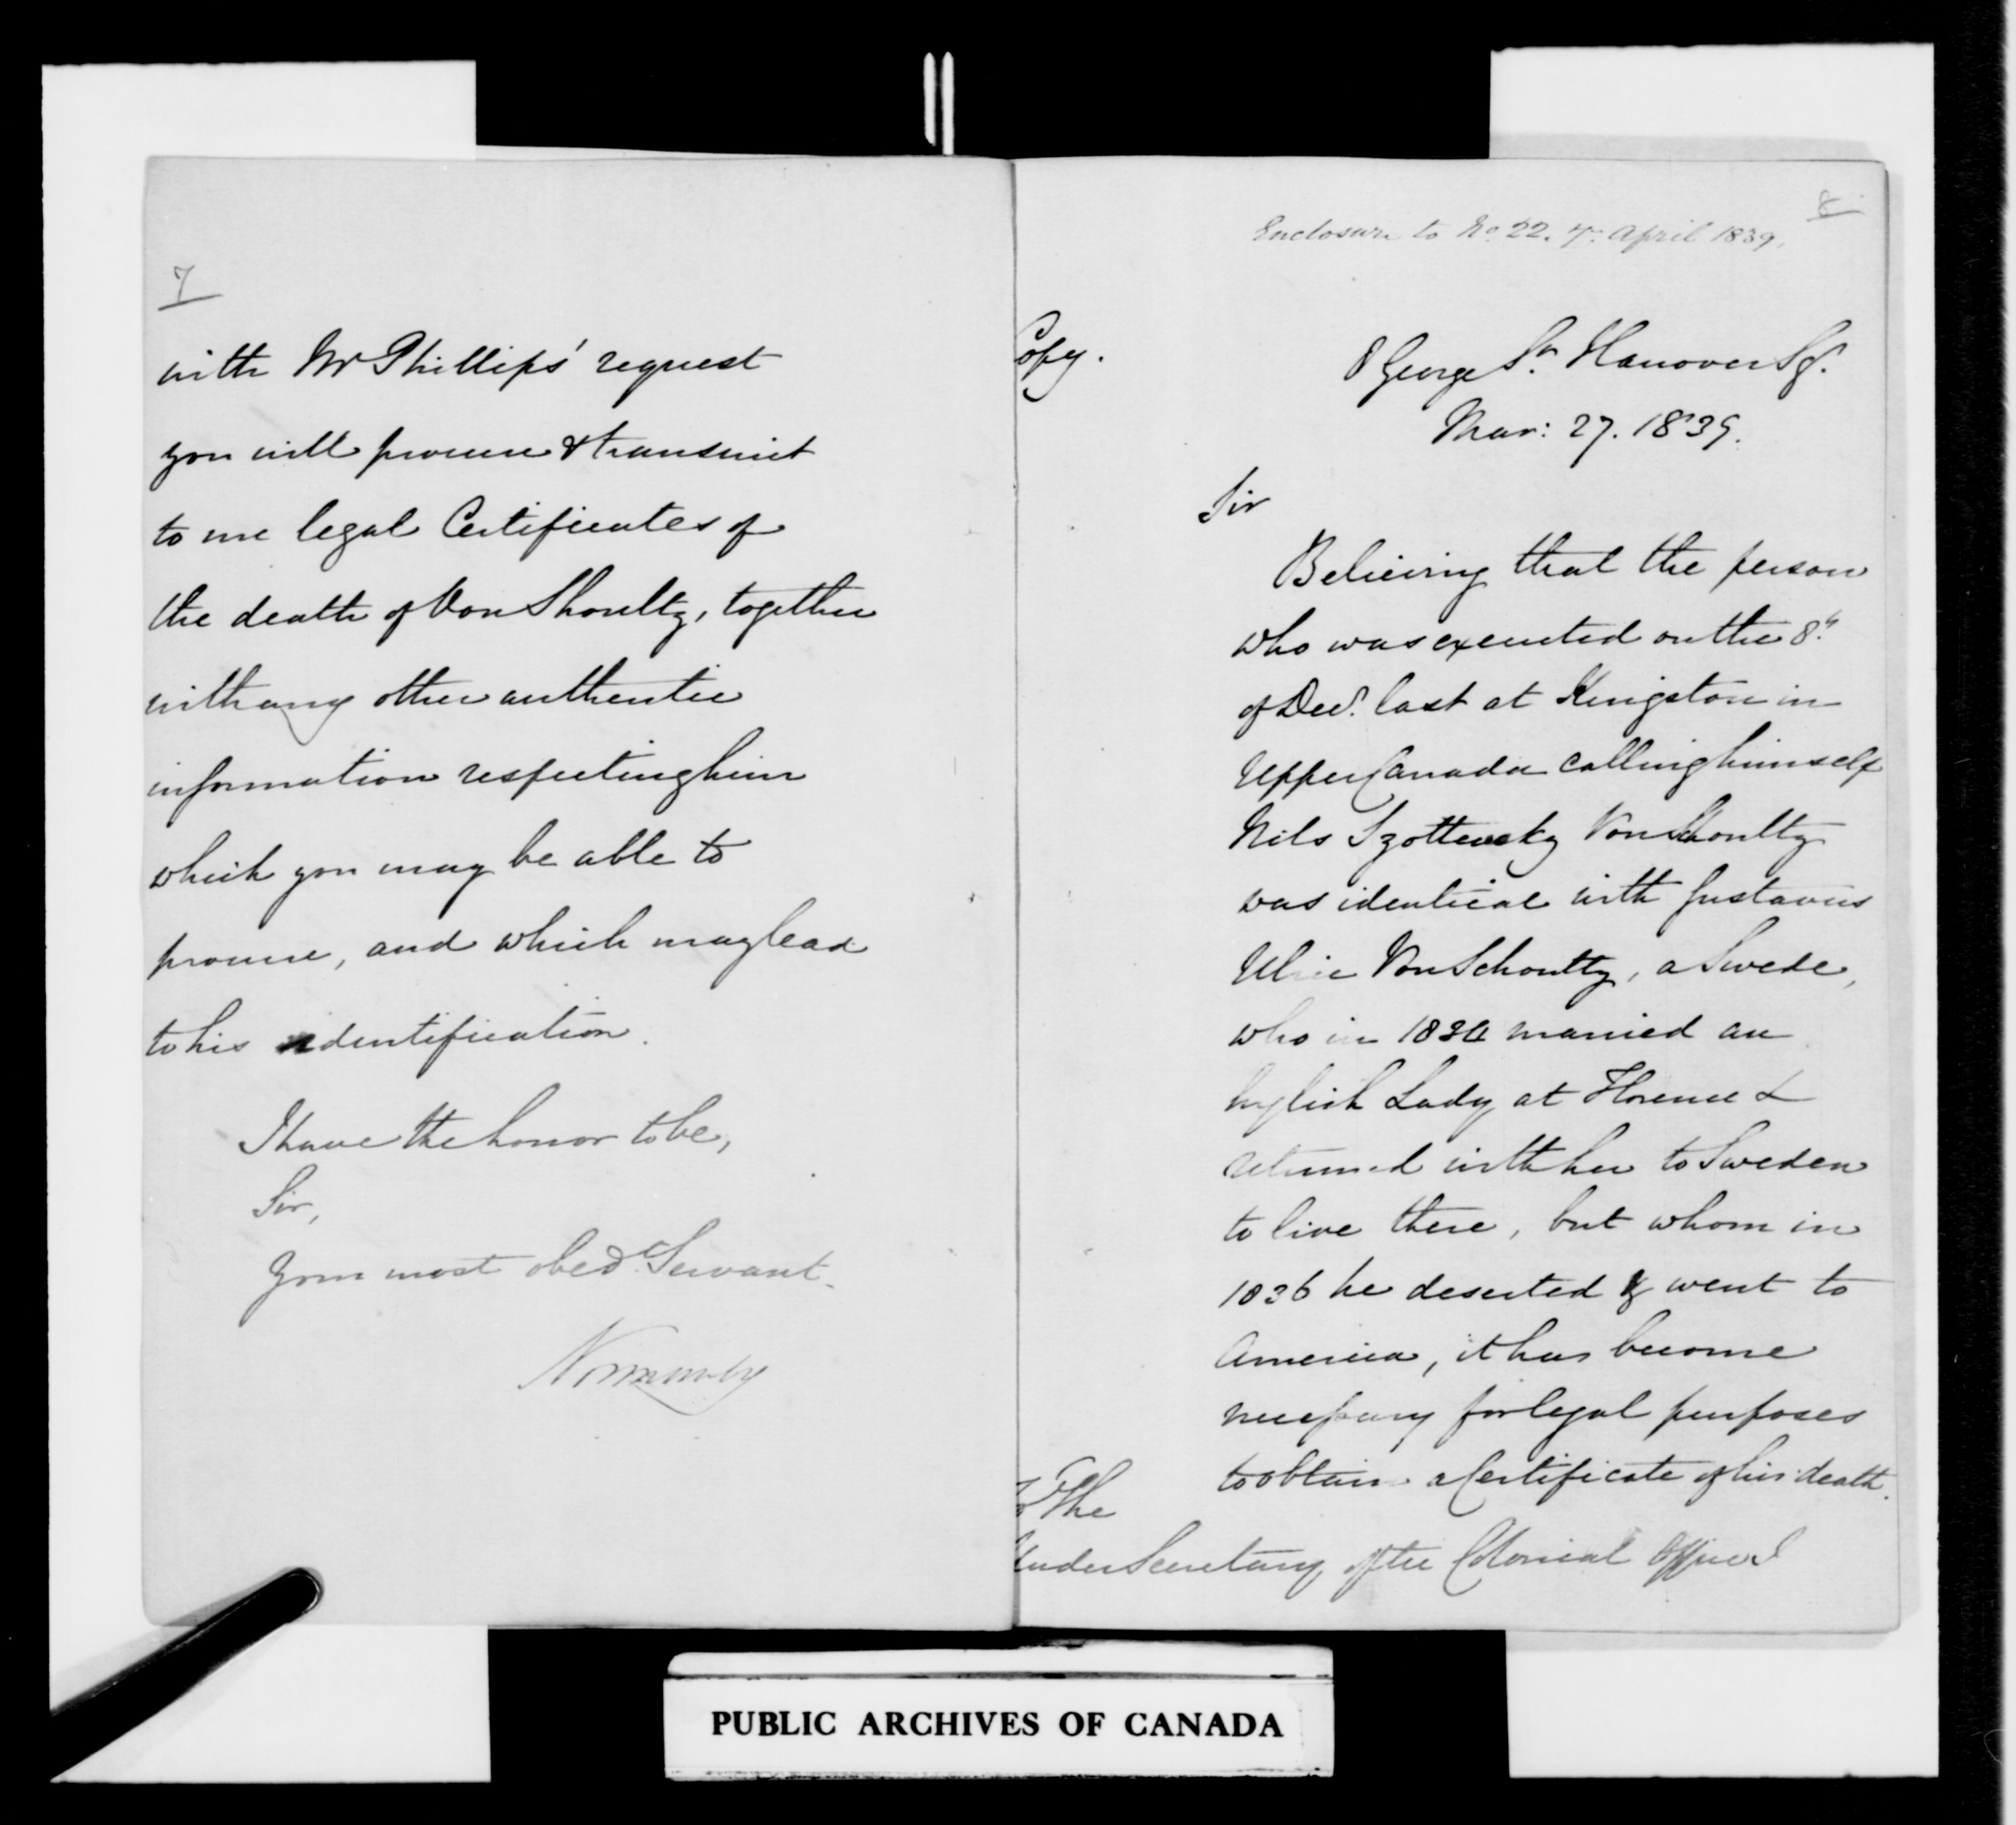 7
with Mr Phillips' request
you will procure & transmit
to me legal Certificates of
the death of Von Shoultz, together
with any other authentic
information respecting him
which you may be able to
procure, and which may lead
to his identification.
I have the honor to be,
Sir,
Your most obedt Servant.
Normanby
8
Enclosure to No. 22. 7th April 1839.
Copy.
8 George St. Hanover Sq.
Mar: 27. 1839.
Sir
Believing that the person
who was executed on the 8th
of Decr. last at Kingston in
Upper Canada calling himself
Nils Szoltevsky Von Shoultz
was identical with Gustavus
Ulric Von Schoultz, a Swede,
who in 1834 married an
English Lady at Florence &
returned with her to Sweden
to live there, but whom in
1836 he deserted & went to
America, it has become
necessary for legal purposes
to obtain a Certificate of his death.
To The
Under Secretary of the Colonial Office
PUBLIC ARCHIVES OF CANADA